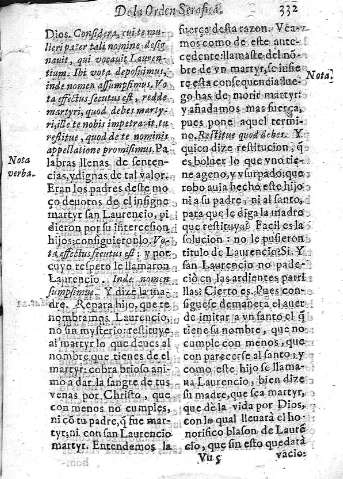 De la Orden Serafica. 332
Dios. Considera, cui te mu-
lieri pater tali nomine desig
nauit, qui vocauit Lauren-
tium. Ibi vota deposuimus,
inde nomen assumpsimus. Vo
ta effectus secutus est, redde
martyri, quod debes marty-
ri, ille te nobis impetrauit, tu
restitue, quod de te nominis
appellatione promisimus. Pa
labras llenas de senten-
cias, y dignas de tal valor.
Nota
verba.
Eran los padres deste mo
ço deuotos de el insigne
martyr san Laurencio, pi
dieron por su intercesion
hijos: consiguieronlo. Vo-
ta effectus secutus est; y por
cuyo respeto le llamaron
Laurencio. Inde nomen
assumpsimus. Y dize la ma
dre. Repara hijo, que te
nombramos Laurencio,
no sin mysterio: restituye
al martyr lo que deues al
nombre que tienes de el
martyr: cobra brioso ani-
mo a dar la sangre de tus
venas por Christo, que
con menos no cumples,
ni cō tu padre, q̃ fue mar-
tyr; ni con san Laurencio
martyr. Entendemos la
fuerça desta razon. Vea-
mos como de este ante-
cedente llamaste del nō-
bre de vn martyr, se infie
re esta consequencia: lue-
go has de morir martyr:
y añadamos mas fuerça,
pues pone aquel termi-
no. Restitue quod debes. Y
quien dize restitucion, q̃
es boluer lo que vno tie-
ne ageno, y vsurpado: que
robo auia hecho este hijo
ni a su padre, ni al santo,
para que le diga la madre
que restituya? Facil es la
solucion: no le pusieron
titulo de Laurencio? Si. Y
san Laurencio no pade-
ciò en las ardientes parri
llas? Cierto es. Pues con-
siguese de manera el auer
de imitar a vn santo el q̃
tiene su nombre, que no
cumple con menos, que
con parecerse al santo: y
como este hijo se llama-
ua Laurencio, bien dize
su madre, que sea martyr,
que dè la vida por Dios,
con lo qual lleuarà el ho-
norifico blason de Laurē
cio, que sin esto quedarà
Nota.
Vu 5 vacio: